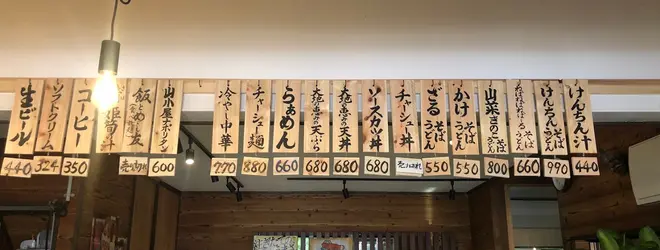 けんちん汁
440
けんちん そば うどん
990
そば うどん
660
山菜きのこ そば うどん
800
かけ そば うどん
550
ざる そば うどん
550
チャーシュー丼
売り切れ
ソースカツ丼
680
大地の恵の天丼
680
大地の恵の天ぷら
680
らぁめん
660
チャーシュー麺
880
冷やし中華
770
山小屋ナポリタン
600
売り切れ
コーヒー
350
ソフトクリーム
324
生ビール
440